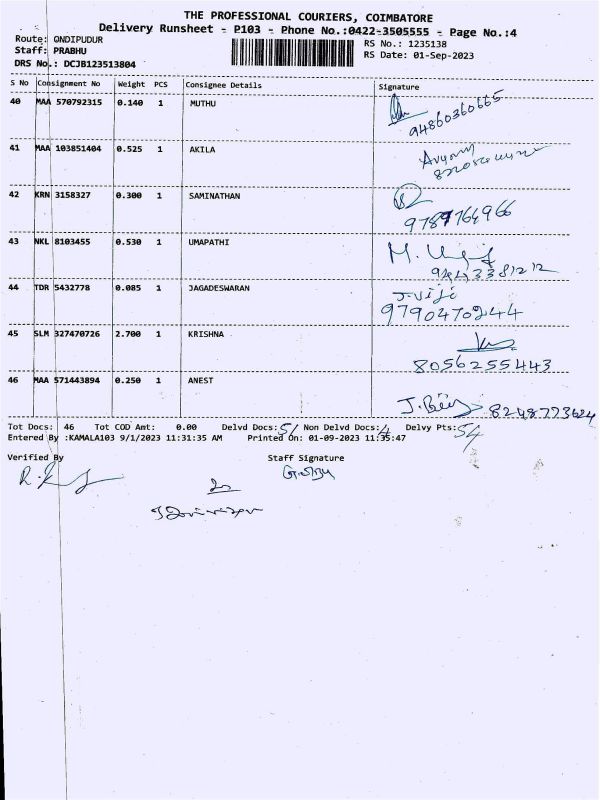 THE PROFESSIONAL COURIERS, COIMBATORE
Delivery Runsheet - P103 - Phone No.:0422-3505555 - Page No.:4
Route: ONDIPUDUR
RS No.: 1235138
Staff: PRABHU
RS Date: 01-Sep-2023
DRS No.: DCJB123513804
S No Consignment No Weight PCS Consignee Details Signature
40 MAA 570792315 0.140 1 MUTHU
94860360665
41 MAA 103851404 0.525 1 AKILA
42 KRN 3158327 0.300 1 SAMINATHAN
9789764966
43 NKL 8103455 0.530 1 UMAPATHI
9443381212
44 TDR 5432778 0.085 1 JAGADESWARAN J.Viji
9790470244
45 SLM 327470726 2.700 1 KRISHNA
8056255443
46 MAA 571443894 0.250 1 ANEST
8248773624
Tot Docs: 46 Tot COD Amt: 0.00 Delvd Docs: Non Delvd Docs: Delvy Pts: 54
Entered By :KAMALA103 9/1/2023 11:31:35 AM Printed On: 01-09-2023 11:35:47
Verified By Staff Signature